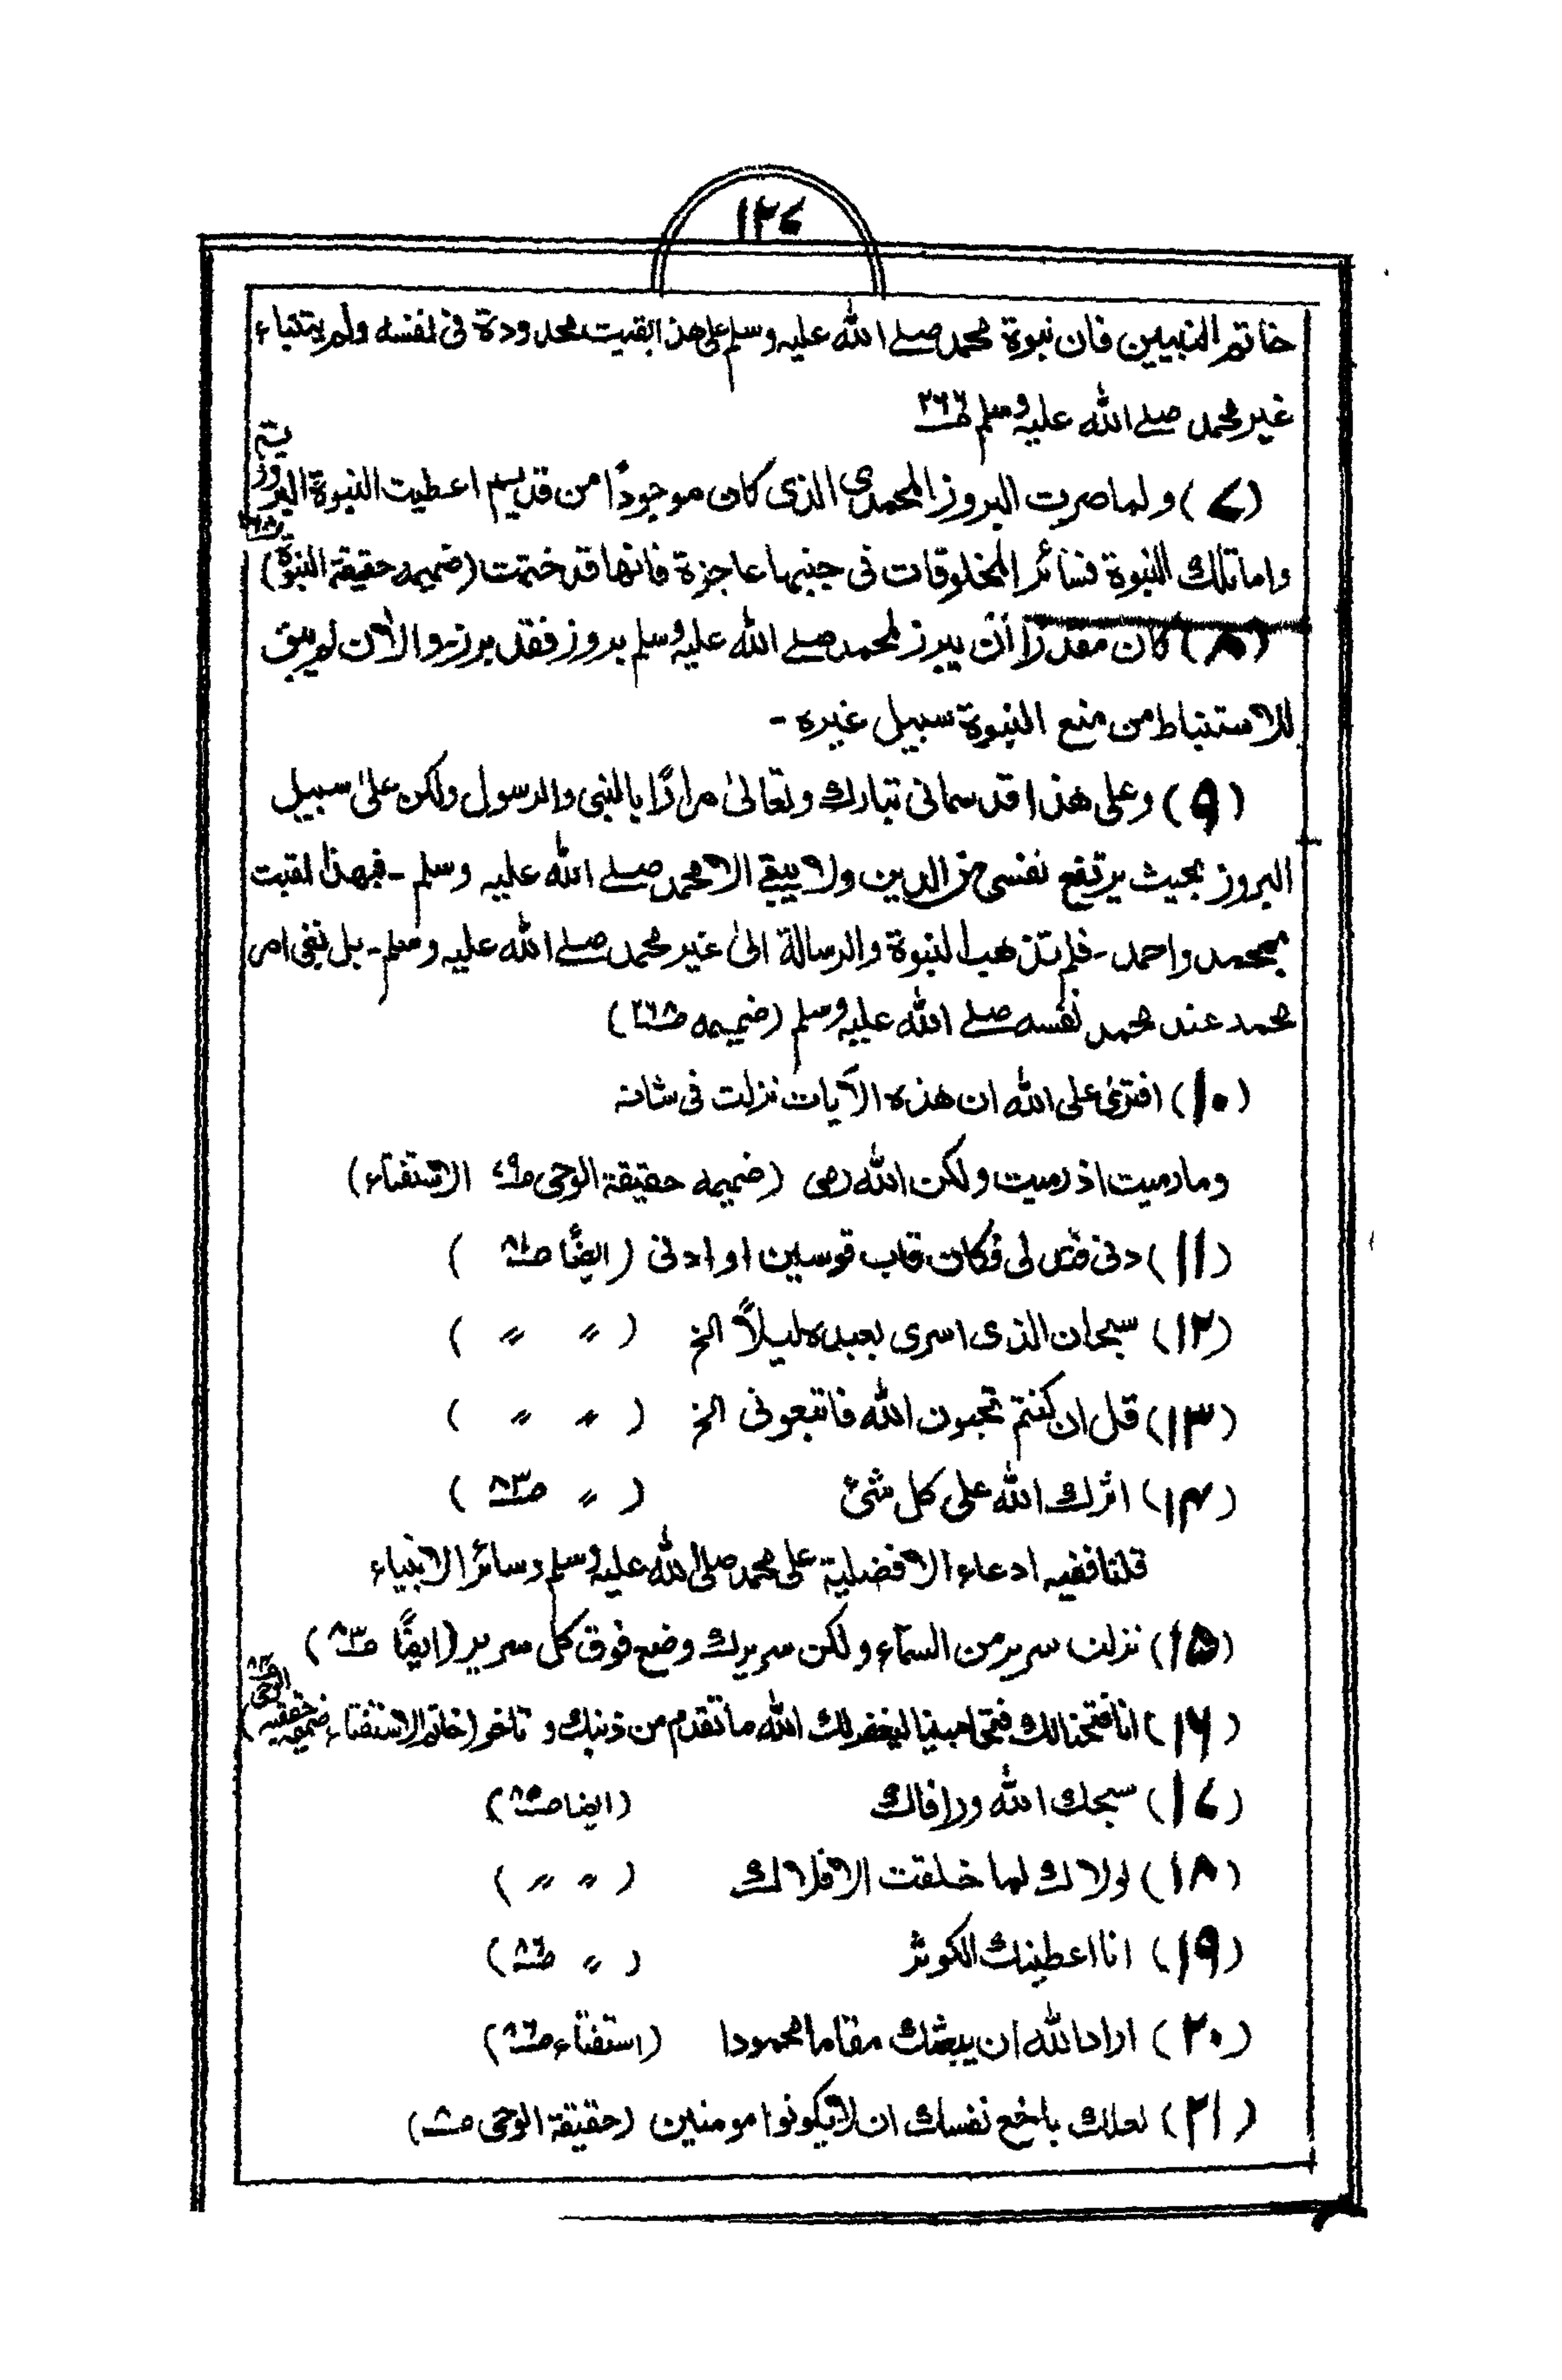 ۱۲۷
خاتم النبیین فان نبوة محمد صلے اللّٰه علیه وسلم علی هذا بقیت محدودة فی نفسه ولم یتنباء
غیر محمد صلے اللّٰه علیه وسلم ص۲۶۶
(۷) ولما صرت البروز المحمدی الذی کان موجودًا من قدیم اعطیت النبوة البروزیة ص۲۶۸
واما تلك النبوة فسائر المخلوقات فی جنبها عاجزة فانها قد ختمت (ضمیمه حقیقة النبوة)
(۸) کان مقدرًا ان یبرز لمحمد صلے اللّٰه علیه وسلم بروز فقد برز۔ والاٰن لم یبق
للاستنباط من منبع النبوة سبیل غیره -
(۹) وعلی هذا قد سمانی تبارك وتعالیٰ مرارًا بالنبی والرسول ولکن علیٰ سبیل
البروز بحیث یرتفع نفسی من الدین ولا یبقے الا محمد صلے اللّٰه علیه وسلم - فبهذا لقبت
بمحمد واحمد - فلم تذهب النبوة والرسالة الیٰ غیر محمد صلے اللّٰه علیه وسلم - بل نبقی امر
محمد عند محمد نفسه صلے اللّٰه علیه وسلم (ضمیمه ص۲۶۸)
(۱۰) افتریٰ علی اللّٰه ان هذه الآیات نزلت فی شانه
وما رمیت اذ رمیت ولکن اللّٰه رمی (ضمیمه حقیقة الوحی ص۷۹ الاستفتاء)
(۱۱) دنی فتدلی فکان قاب قوسین او ادنی (ایضًا ص۸۱ )
(۱۲) سبحان الذی اسری بعبده لیلًا الخ ( 〃 〃 )
(۱۳) قل ان کنتم تحبون اللّٰه فاتبعونی الخ ( 〃 〃 )
(۱۴) اثرك اللّٰه علی کل شئ ( 〃 ص۸۳ )
قلنا ففیه ادعاء الافضلیة علی محمد صلی اللّٰه علیه وسلم وسائر الانبیاء
(۱۵) نزلت سریر من السمآء ولکن سریرك وضع فوق کل سریر (ایضًا ص۸۳)
(۱۶) انا فتحنا لك فتحا مبینا لیغفر لك اللّٰه ما تقدم من ذنبك و تاخر (خاتم الاستفتاء ضمیمه حقیقة الوحی)
(۱۷) سبحك اللّٰه ورافاك (ایضا ص۸۵)
(۱۸) لولاك لما خلقت الافلاك ( 〃 〃 )
(۱۹) انا اعطینك الکوثر ( 〃 ص۸۶)
(۲۰) اراد اللّٰه ان یبعثك مقاما محمودا (استفتاء ص۸۶)
(۲۱) لعلك باخع نفسك ان لا یکونوا مومنین (حقیقة الوحی ص۸۰)